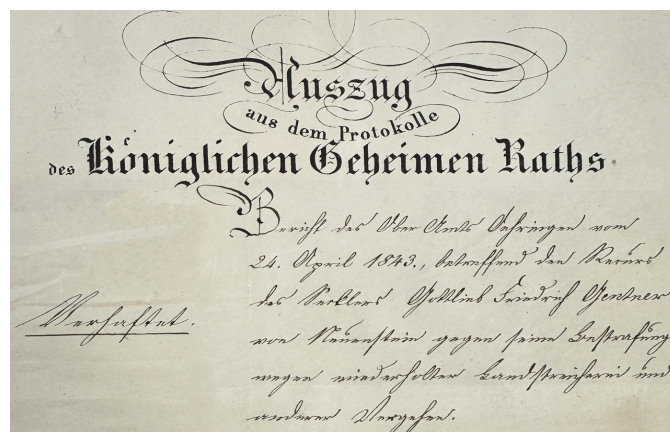 Auszug
aus dem Protokolle
des Königlichen Geheimen Raths.
Bericht des Ober Amts Oehringen vom
24. April 1843., betreffend den Recurs
des Secklers Gottlieb Friedrich Gentner
Verhaftet.
von Neuenstein gegen seine Bestrafung
wegen wiederholter Landstreicherei und
anderer Vergehen.